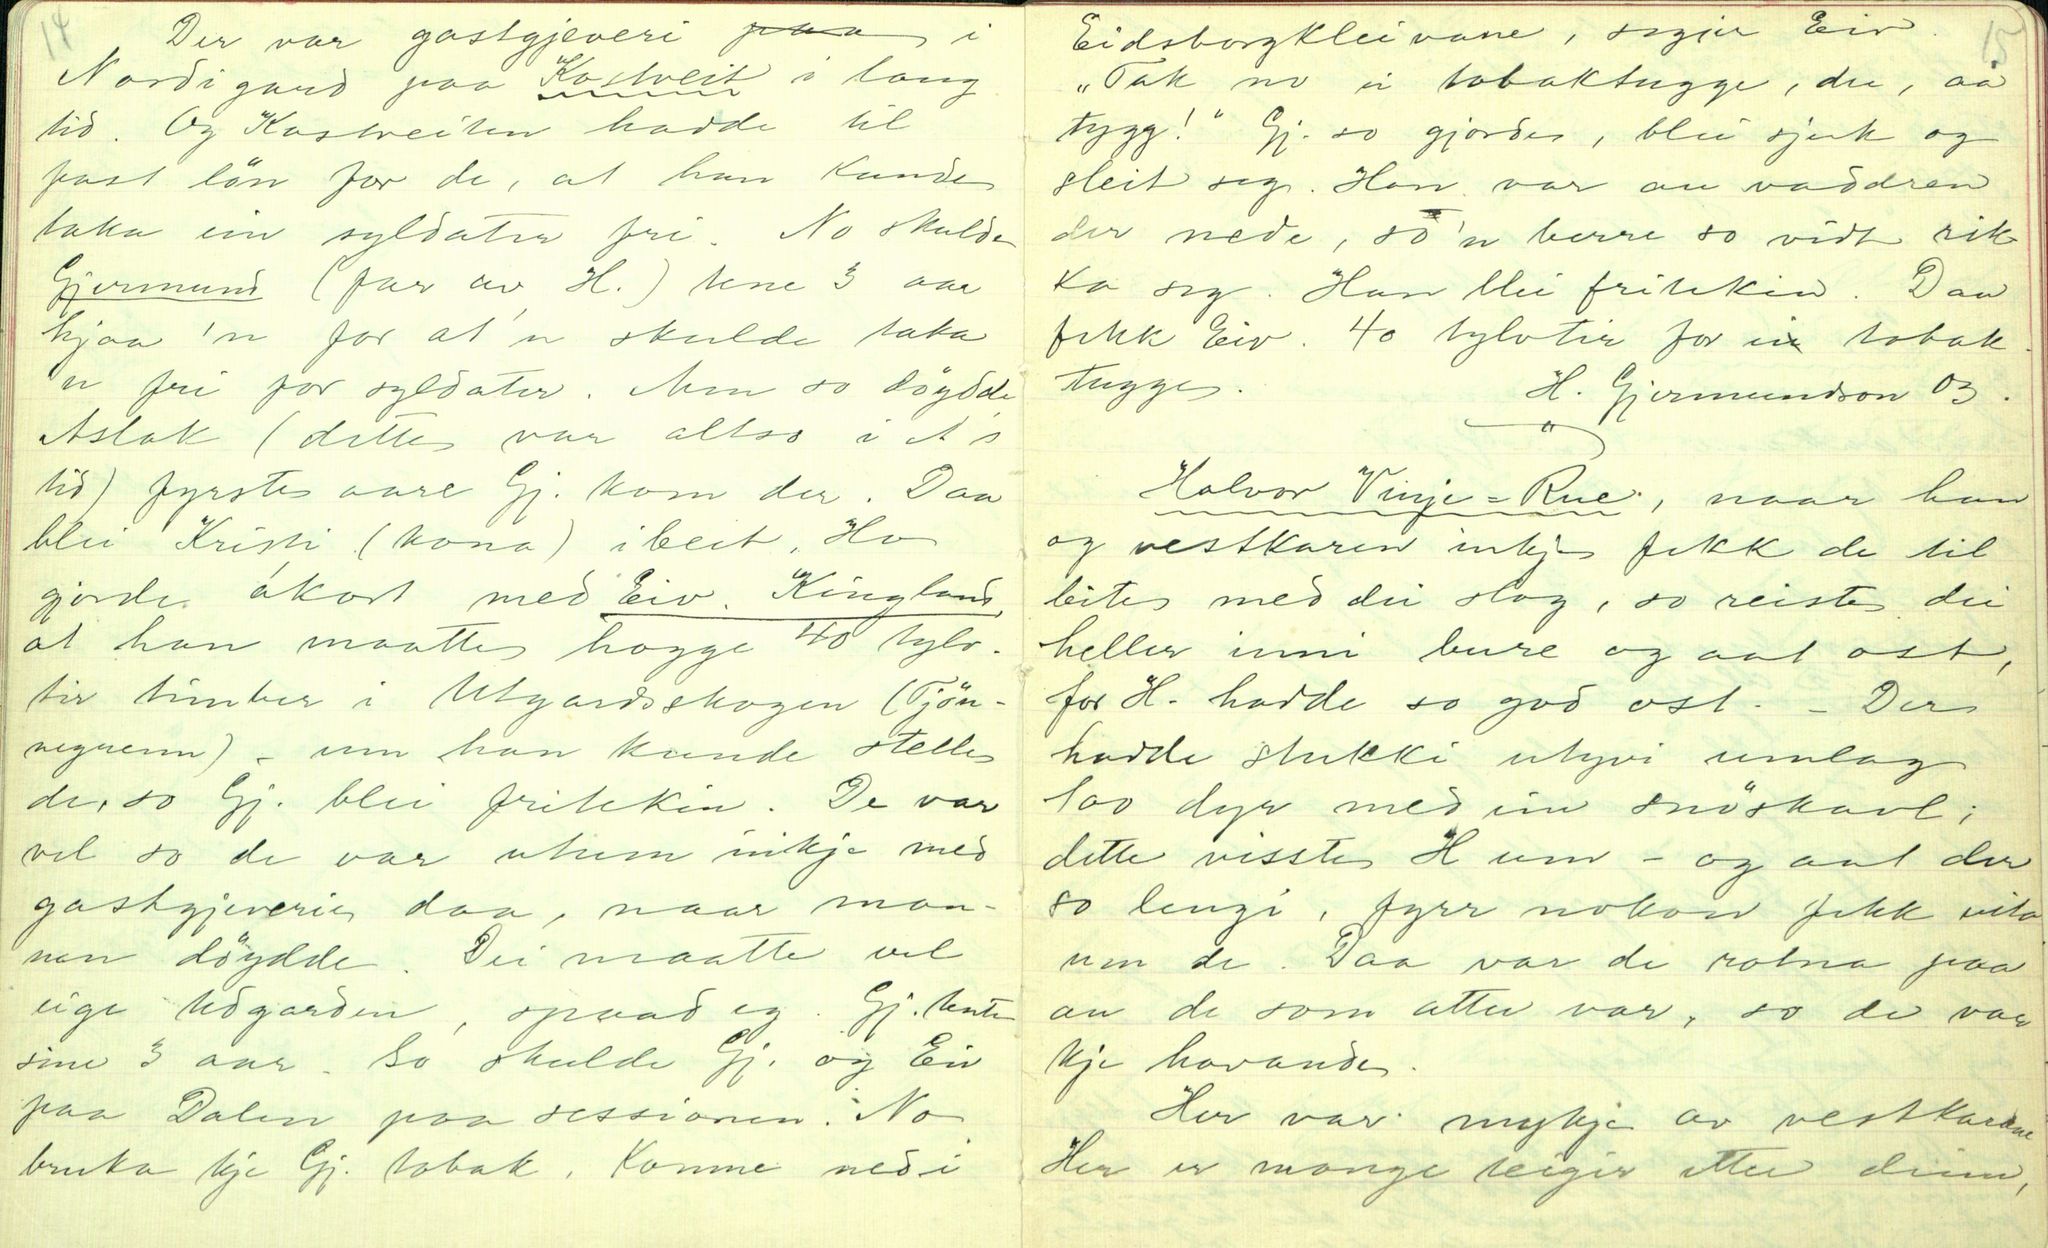 14
Der var gastgjeveri paa i
Nordigard paa Kostveit i lang
tid. Og Kostveiten hadde til
fast lön for de, at han kunde
taka ein syldater fri. No skulde
Gjermund (far av H.) tene 3 aar
hjaa 'n for at'n skulde taka
'n fri for syldater. Men so döydde
Aslak (dette var altso i A's
tid) fyrste aare Gj. kom der. Daa
blei Kristi (kona) i beit. Ho
gjorde akort med Eiv. Kingland
at han maatte hogge 40 tylv-
tir timber i Utgardsskogen (Tjön-
negrenn) - um han kunde stelle
de, so Gj. blei fritekin. De var
vel so de var uhem inkje med
gastgjeverie daa, naar man-
nen döydde. Dei maatte vel
eige Udgarden, spaad eg. Gj. tente
sine 3 aar. So skulde Gj. og Eiv
paa Dalen paa sessionen. No
bruka kje Gj. tobak. Komne ned i
15
Eidsborgkleivane, segjer Eiv.
"Tak no ei tobaktugge, du, aa
tygg!" Gj. so gjorde, blei sjuk og
sleit seg. Han var au vaddren
der nede, so'n berre so vidt rik-
ka seg. Han blei fritekin. Daa
fekk Eiv. 40 tylvtir for ei tobak-
tugge.
H. Gjermundson Os.
Halvor Vinje-Rue, naar han
og vestkaren inkje fekk de til
beite med dei slog, so reiste dei
heller inni bure og aat ost,
for H. hadde so god ost. - Der
hadde stukki utyvi umlag
100 dyr med ein snöskavl;
dette visste H um - og aat der
so lengi, fyrr nokon fekk vita
um de. Daa var de rotna paa
au de som atter var, so de var
kje havande.
Her var mykje av vestkarane
Her er mange teigir etter deim,